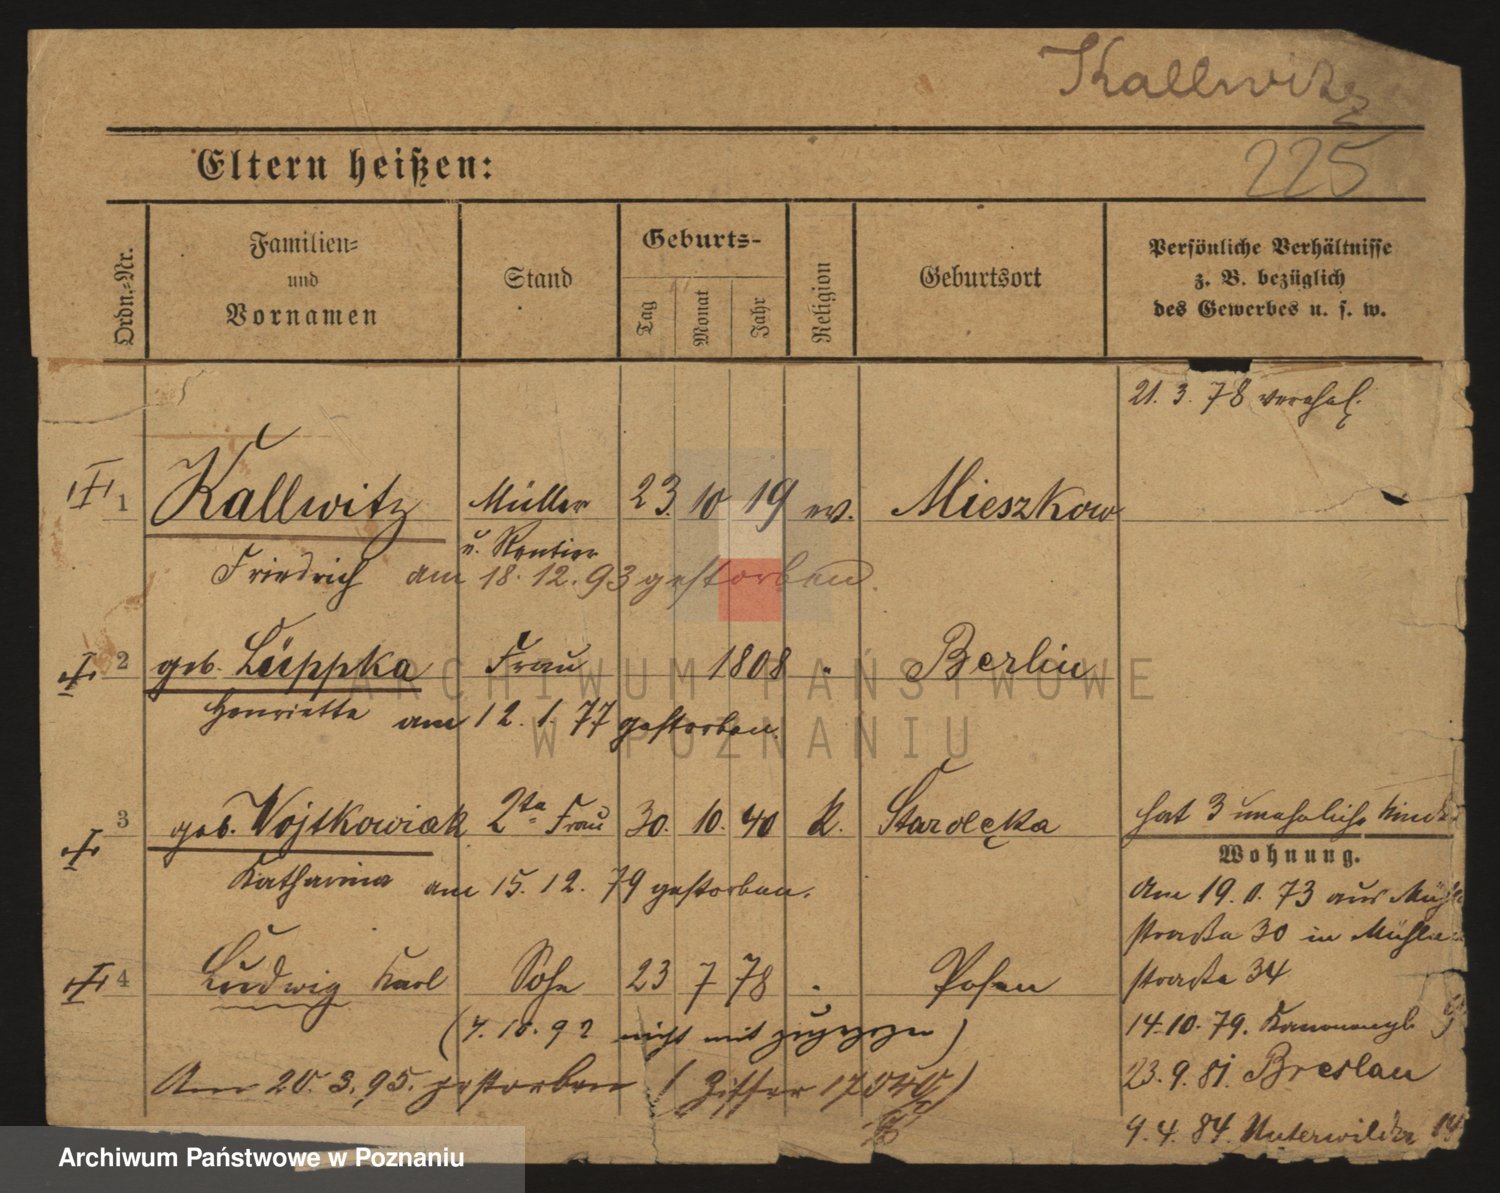 Kallwitz
225
Eltern heißen:
Ordn.-Nr.
Familien-
und
Vornamen
Stand
Geburts-
Tag
Monat
Jahr
Religion
Geburtsort
Persönliche Verhältnisse
z. B. bezüglich
des Gewerbes u. s. w.
21. 3. 78 verehel.
1 Kallwitz Müller 23. 10 19 ev. Mieszkow
u. Rentier
Friedrich am 18. 12. 93 gestorben.
2 geb. Lüppka Frau 1808 " Berlin
Henriette am 12. 1. 77 gestorben.
3 geb. Wojtkowiak 2te Frau 30. 10. 40 k. Starolęka
hat 3 uneheliche Kinder
Wohnung.
Katharina am 15. 12. 79 gestorben.
Am 19. 0. 73 aus Mühl
straße 30 in Mühlen
straße 34
4 Ludwig Karl Sohn 23 7 78 " Posen
(7. 10. 92 nicht mit zugezogen)
14. 10. 79. Kanonenpl. 9
Am 20. 3. 95. gestorben (Ziffer 17540)
23. 9. 81. Breslau
9. 4. 84. Unterwilda 14
ARCHIWUM PAŃSTWOWE
W POZNANIU
Archiwum Państwowe w Poznaniu